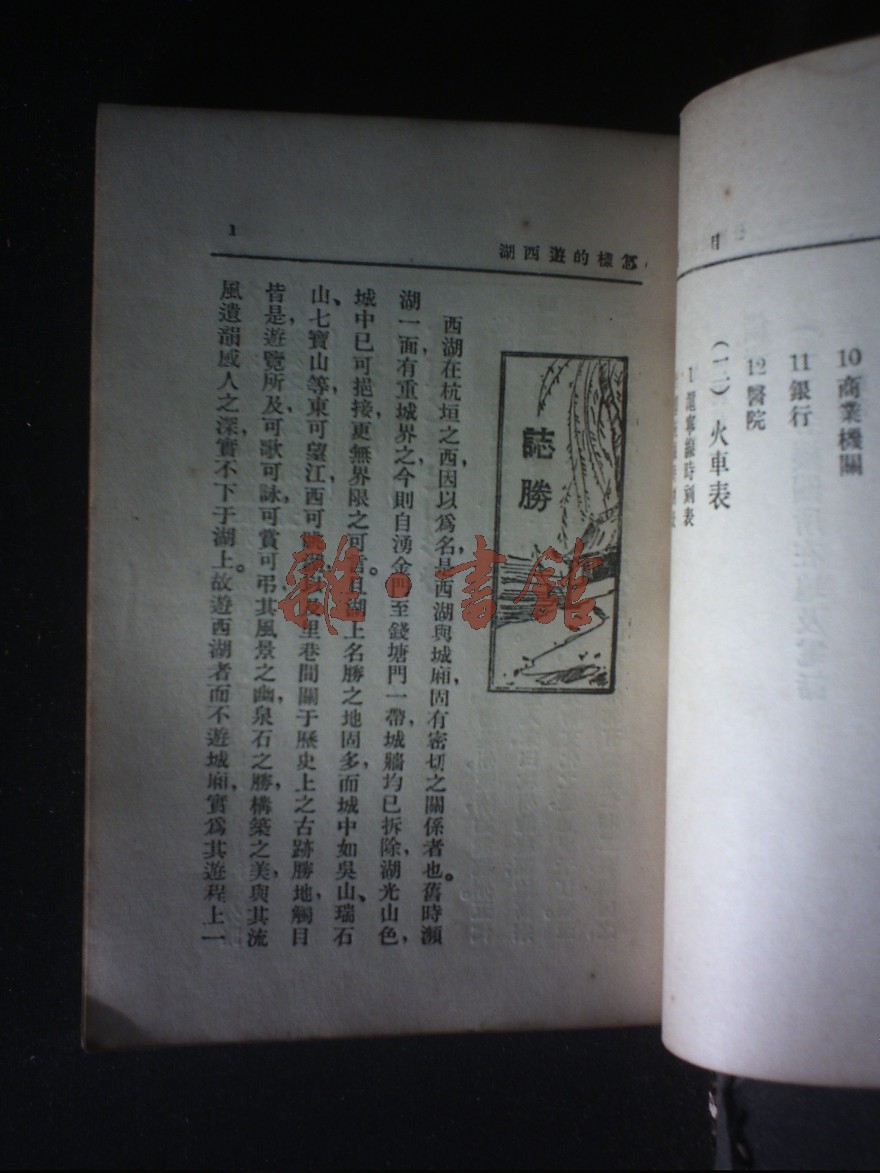 目
10 商業機關
11 銀行
12 醫院
(一二) 火車表
怎樣的遊西湖
1
誌勝
西湖在杭垣之西，因以爲名，是西湖與城廂，固有密切之關係者也。舊時瀕
湖一面，有重城界之，今則自湧金門至錢塘門一帶，城牆均已拆除，湖光山色，
城中已可挹接，更無界限之可言。且湖上名勝之地固多，而城中如吳山、瑞石
山、七寶山等，東可望江，西可眺湖，里巷間關于歷史上之古跡勝地，觸目
皆是，遊覽所及，可歌可詠，可賞可弔，其風景之幽，泉石之勝，構築之美，與其流
風遺韻，感人之深，實不下于湖上。故遊西湖者，而不遊城廂，實爲其遊程上一
雜·書館